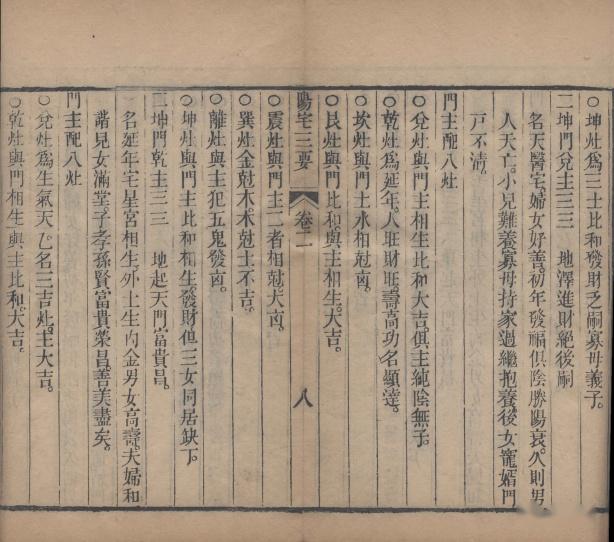 ○坤灶爲三土比和發財乏嗣寡母義子。
二坤門兌主三三　地澤進財絕後嗣
名天醫宅婦女好善。初年發福俱陰勝陽衰。久則男
人夭亡。小兒難養寡母持家過繼抱養後女寵婿門
戶不清。
門主配八灶
○兌灶與門主相生比和大吉俱主純陰無子。
○乾灶爲延年。人旺財旺。壽高功名顯達。
○坎灶與門主土水相尅凶。
○艮灶與門比和。與主相生。大吉。
陽宅三要　卷二　八
○震灶與門主二者相尅。大凶。
○巽灶金尅木木尅土不吉。
○離灶與主犯五鬼發凶。
○坤灶與門主比和相生。發財但三女同居缺丁。
二坤門乾主三三　地起天門富貴昌。
名延年宅星宮相生外土生內金男女高壽。夫婦和
諧見女滿堂子孝孫賢富貴榮昌。善美盡矣。
門主配八灶
○兌灶爲生氣天乙名三吉灶。主大吉。
○乾灶與門相生與主比和。大吉。